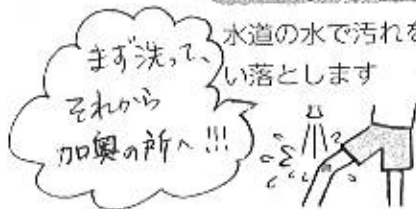 まず洗って、
それから
加奥の所へ!!!
水道の水で汚れを
い落とします